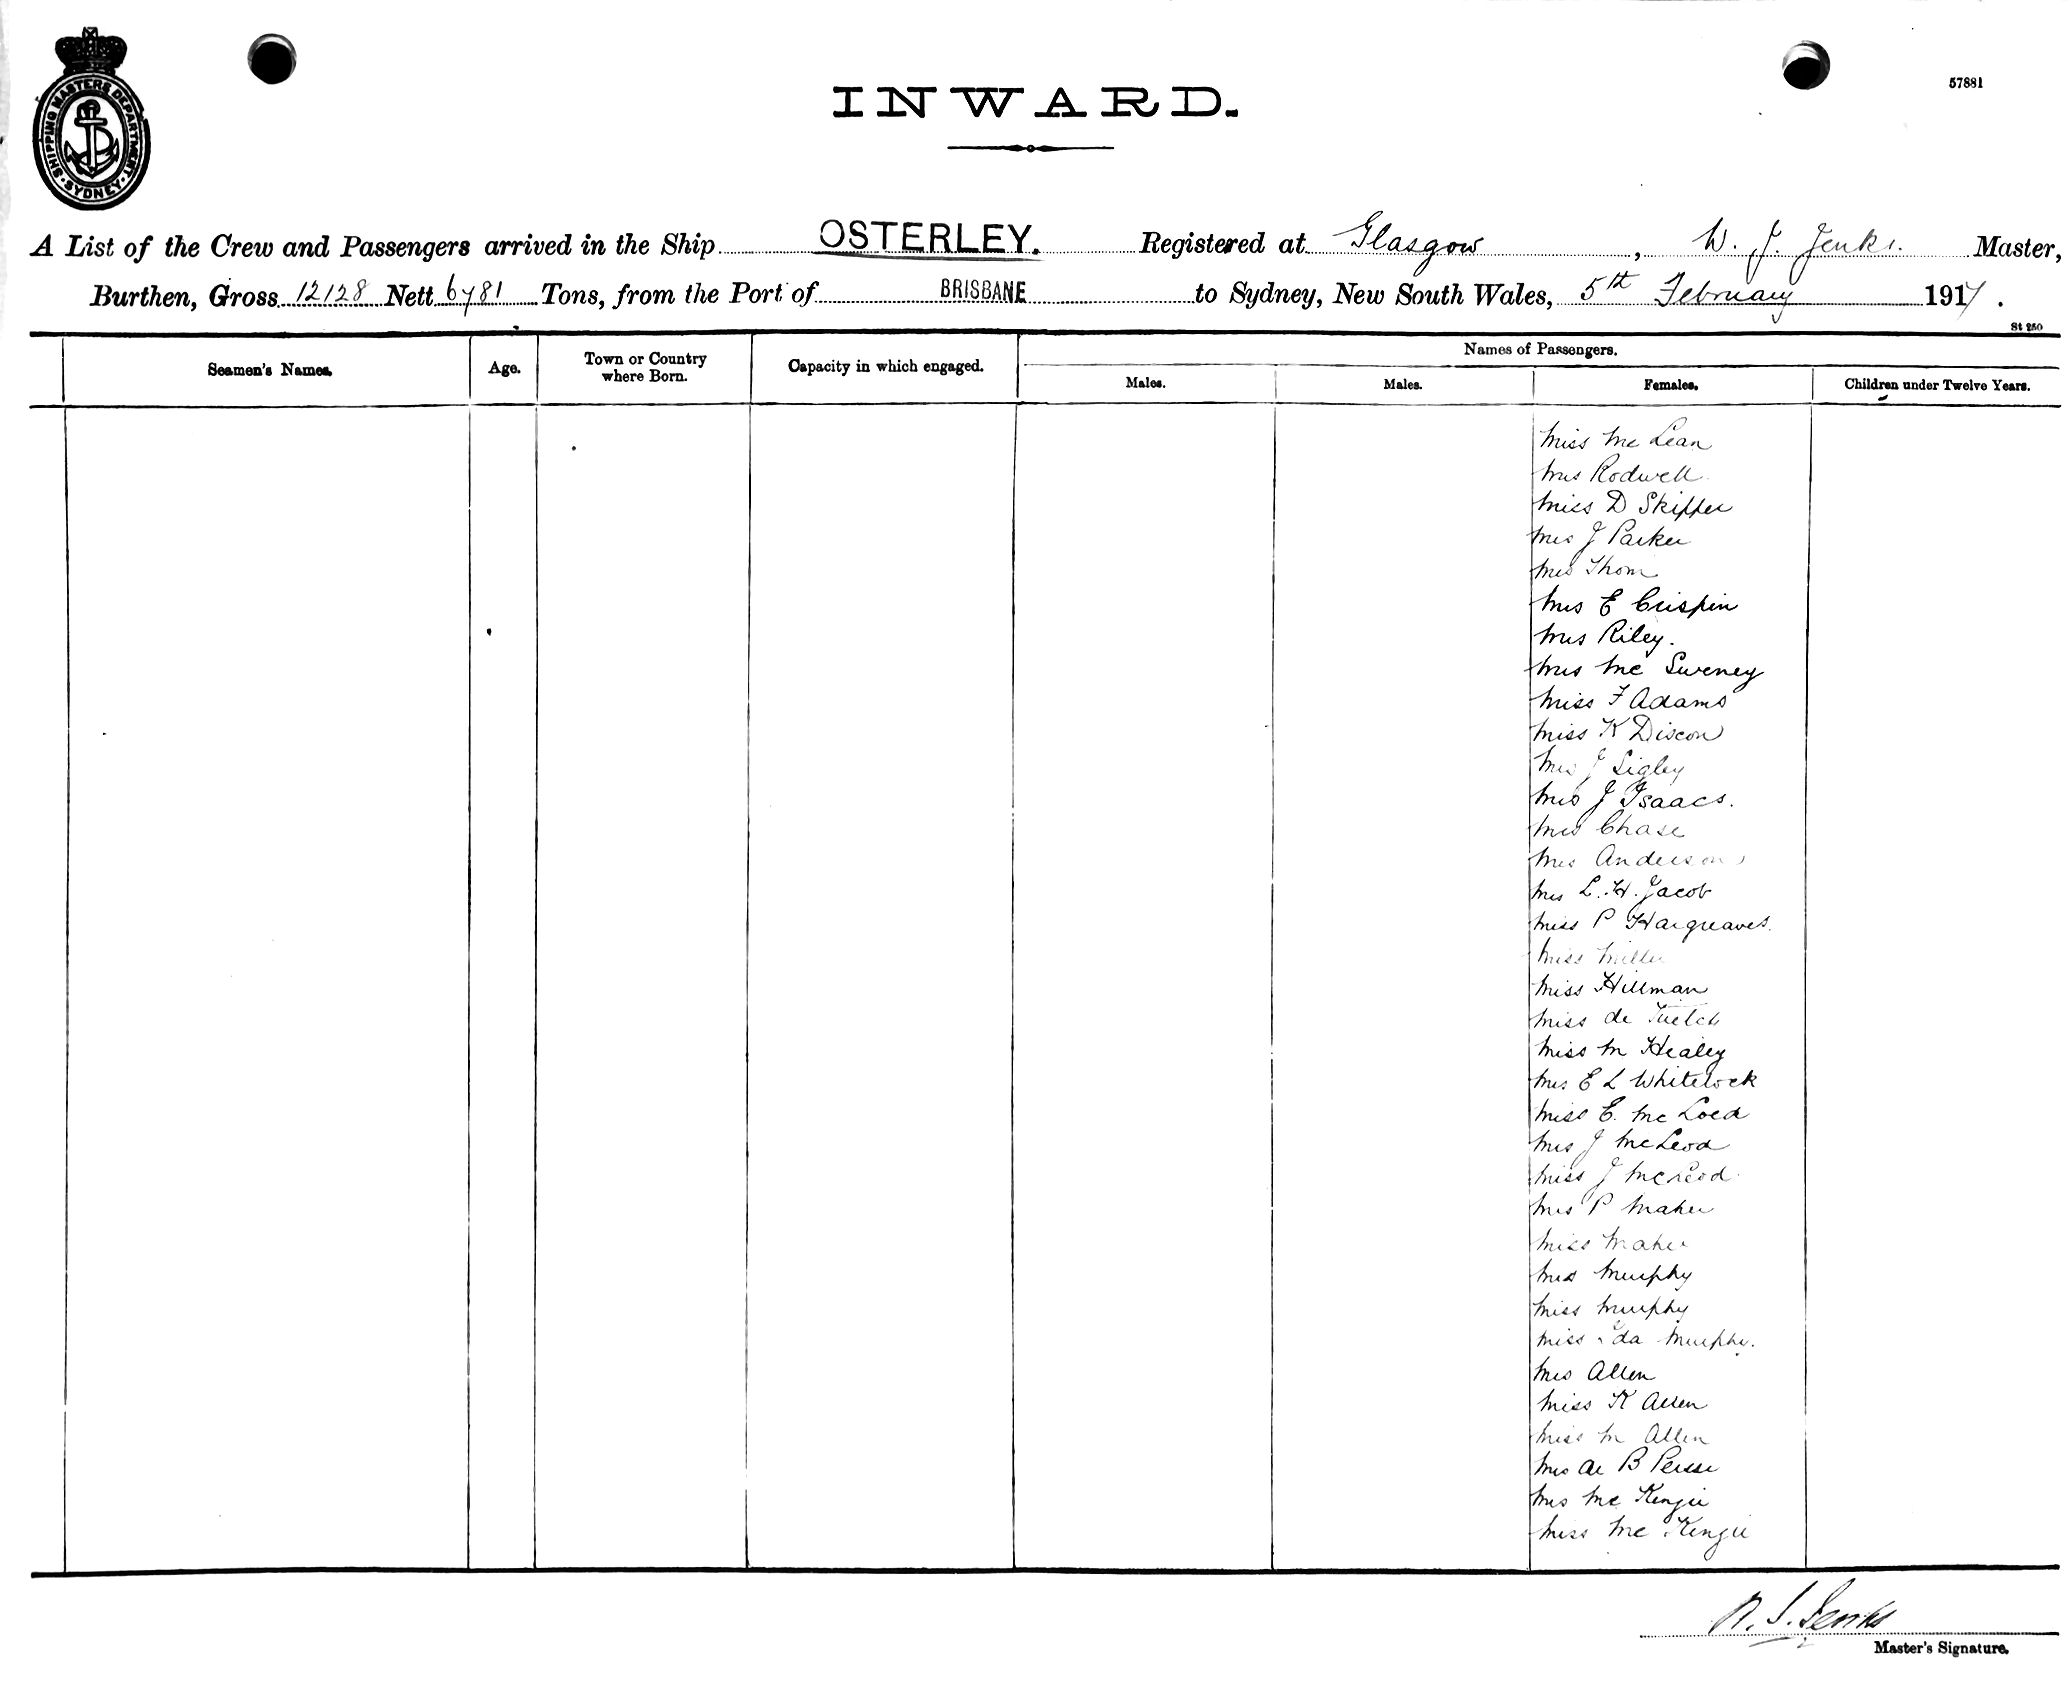 SHIPPING MASTERS DEPARTMENT
SYDNEY
57881
INWARD.
A List of the Crew and Passengers arrived in the Ship OSTERLEY. Registered at Glasgow, W. J. Jenks. Master,
Burthen, Gross 12128 Nett 6781 Tons, from the Port of BRISBANE to Sydney, New South Wales, 5th February 1917.
St 250
Seamen's Names. Age. Town or Country where Born. Capacity in which engaged. Names of Passengers.
Males. Males. Females. Children under Twelve Years.
Miss Mc Lean
Mrs Rodwell
Miss D Skipper
Mrs J Parker
Mrs Thom
Mrs E Crispin
Mrs Riley.
Mrs Mc Sweney
Miss F Adams
Miss K Discon
Mrs J Sigley
Mrs J Isaacs.
Mrs Chase
Mrs Anderson
Mrs L. H. Jacob
Miss P Hargreaves.
Miss Miller
Miss Hillman
Miss de
Miss M Healey
Mrs E L Whitelock
Miss E. Mc Loed
Mrs J McLeod
Miss J McLeod
Mrs P Maher
Miss Maher
Mrs Murphy
Miss Murphy
Miss Ida Murphy.
Mrs Allen
Miss K Allen
Miss M Allen
Mrs de B Persse
Mrs Mc Kenzie
Miss Mc Kenzie
W. J. Jenks
Master's Signature.